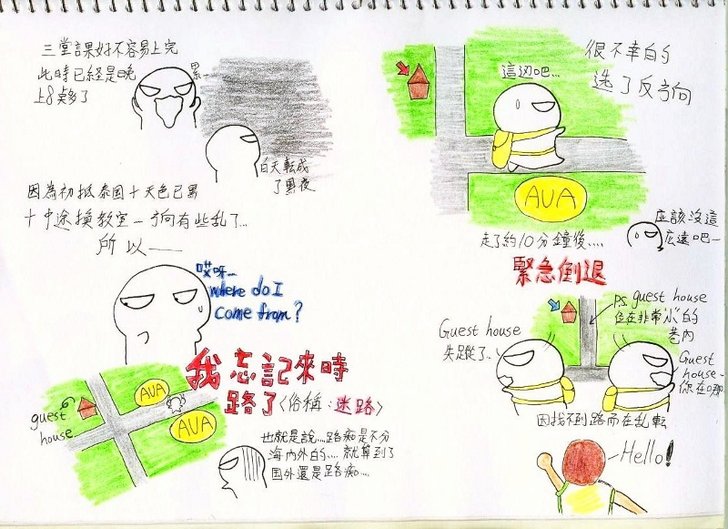 三堂課好不容易上完
此時已經是晚
上8點多了
累…
白天転成
了黑夜
因為初抵泰国+天色已黑
+中途換教室–方向有些乱了…
所以——
哎呀…
where do I
come from?
我忘記來時
路了<俗稱:迷路>
AUA
AUA
guest
house
也就是說…路痴是不分
海內外的…. 就算到了
国外還是路痴…
很不幸的
選了反方向
這边吧…
AUA
走了約10分鐘後….
应該沒這
広遠吧–
緊急倒退
Guest house
失蹤了..
PS guest house
位在非常小的
巷內
Guest
house–
你在哪
因找不到路而在乱転
Hello!